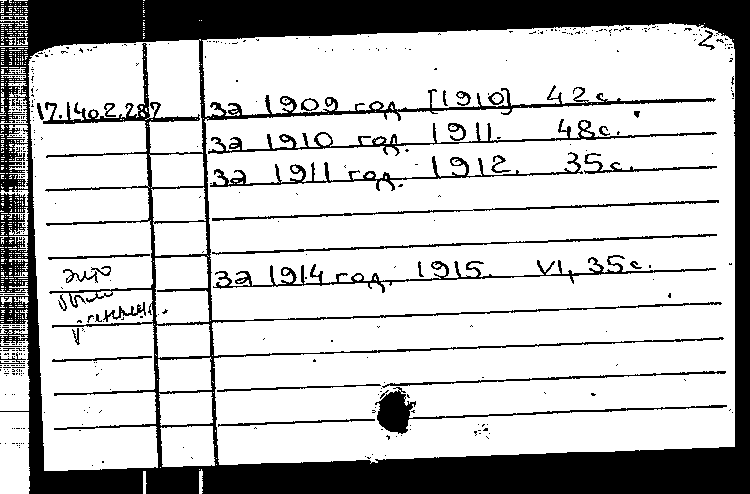 2
17.140.2.287 за 1909 год. [1910] 42с.
за 1910 год. 1911. 48с.
за 1911 год. 1912. 35с.
за 1914 год. 1915. VI, 35с.
это
были